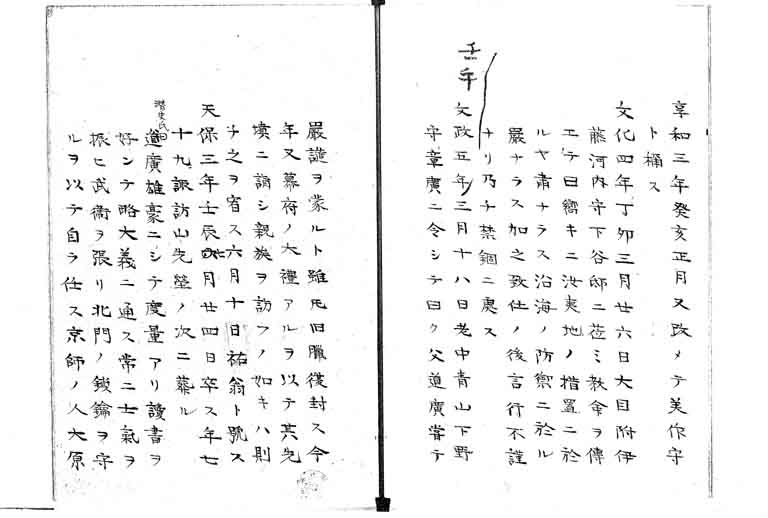 享和三年癸亥正月又改メテ美作守
ト稱ス
文化四年丁卯三月廿六日大目附伊
藤河内守下谷邸ニ莅ミ教命ヲ傳
エテ曰嚮キニ汝夷地ノ措置ニ於
ルヤ肅ナラス沿海ノ防禦ニ於ル
嚴ナラス加之致仕ノ後言行不謹
ナリ乃チ禁錮ニ處ス
壬午
文政五年三月十八日老中青山下野
守章廣ニ令シテ曰ク父道廣嘗テ
嚴譴ヲ蒙ルト雖モ旧臘復封ス今
年又幕府ノ大禮アルヲ以テ其先
墳ニ謁シ親族ヲ訪フノ如キハ則
チ之ヲ宥ス六月十日祐翁ト號ス
天保三年壬辰 月廿四日卒ス年七
十九諏訪山先塋ノ次ニ葬ル
潜史氏曰
道廣雄豪ニシテ度量アリ讀書ヲ
好ンテ略大義ニ通ス常ニ士氣ヲ
振ヒ武衞ヲ張リ北門ノ鎖鑰ヲ守
ルヲ以テ自ラ任ス京師ノ人大原